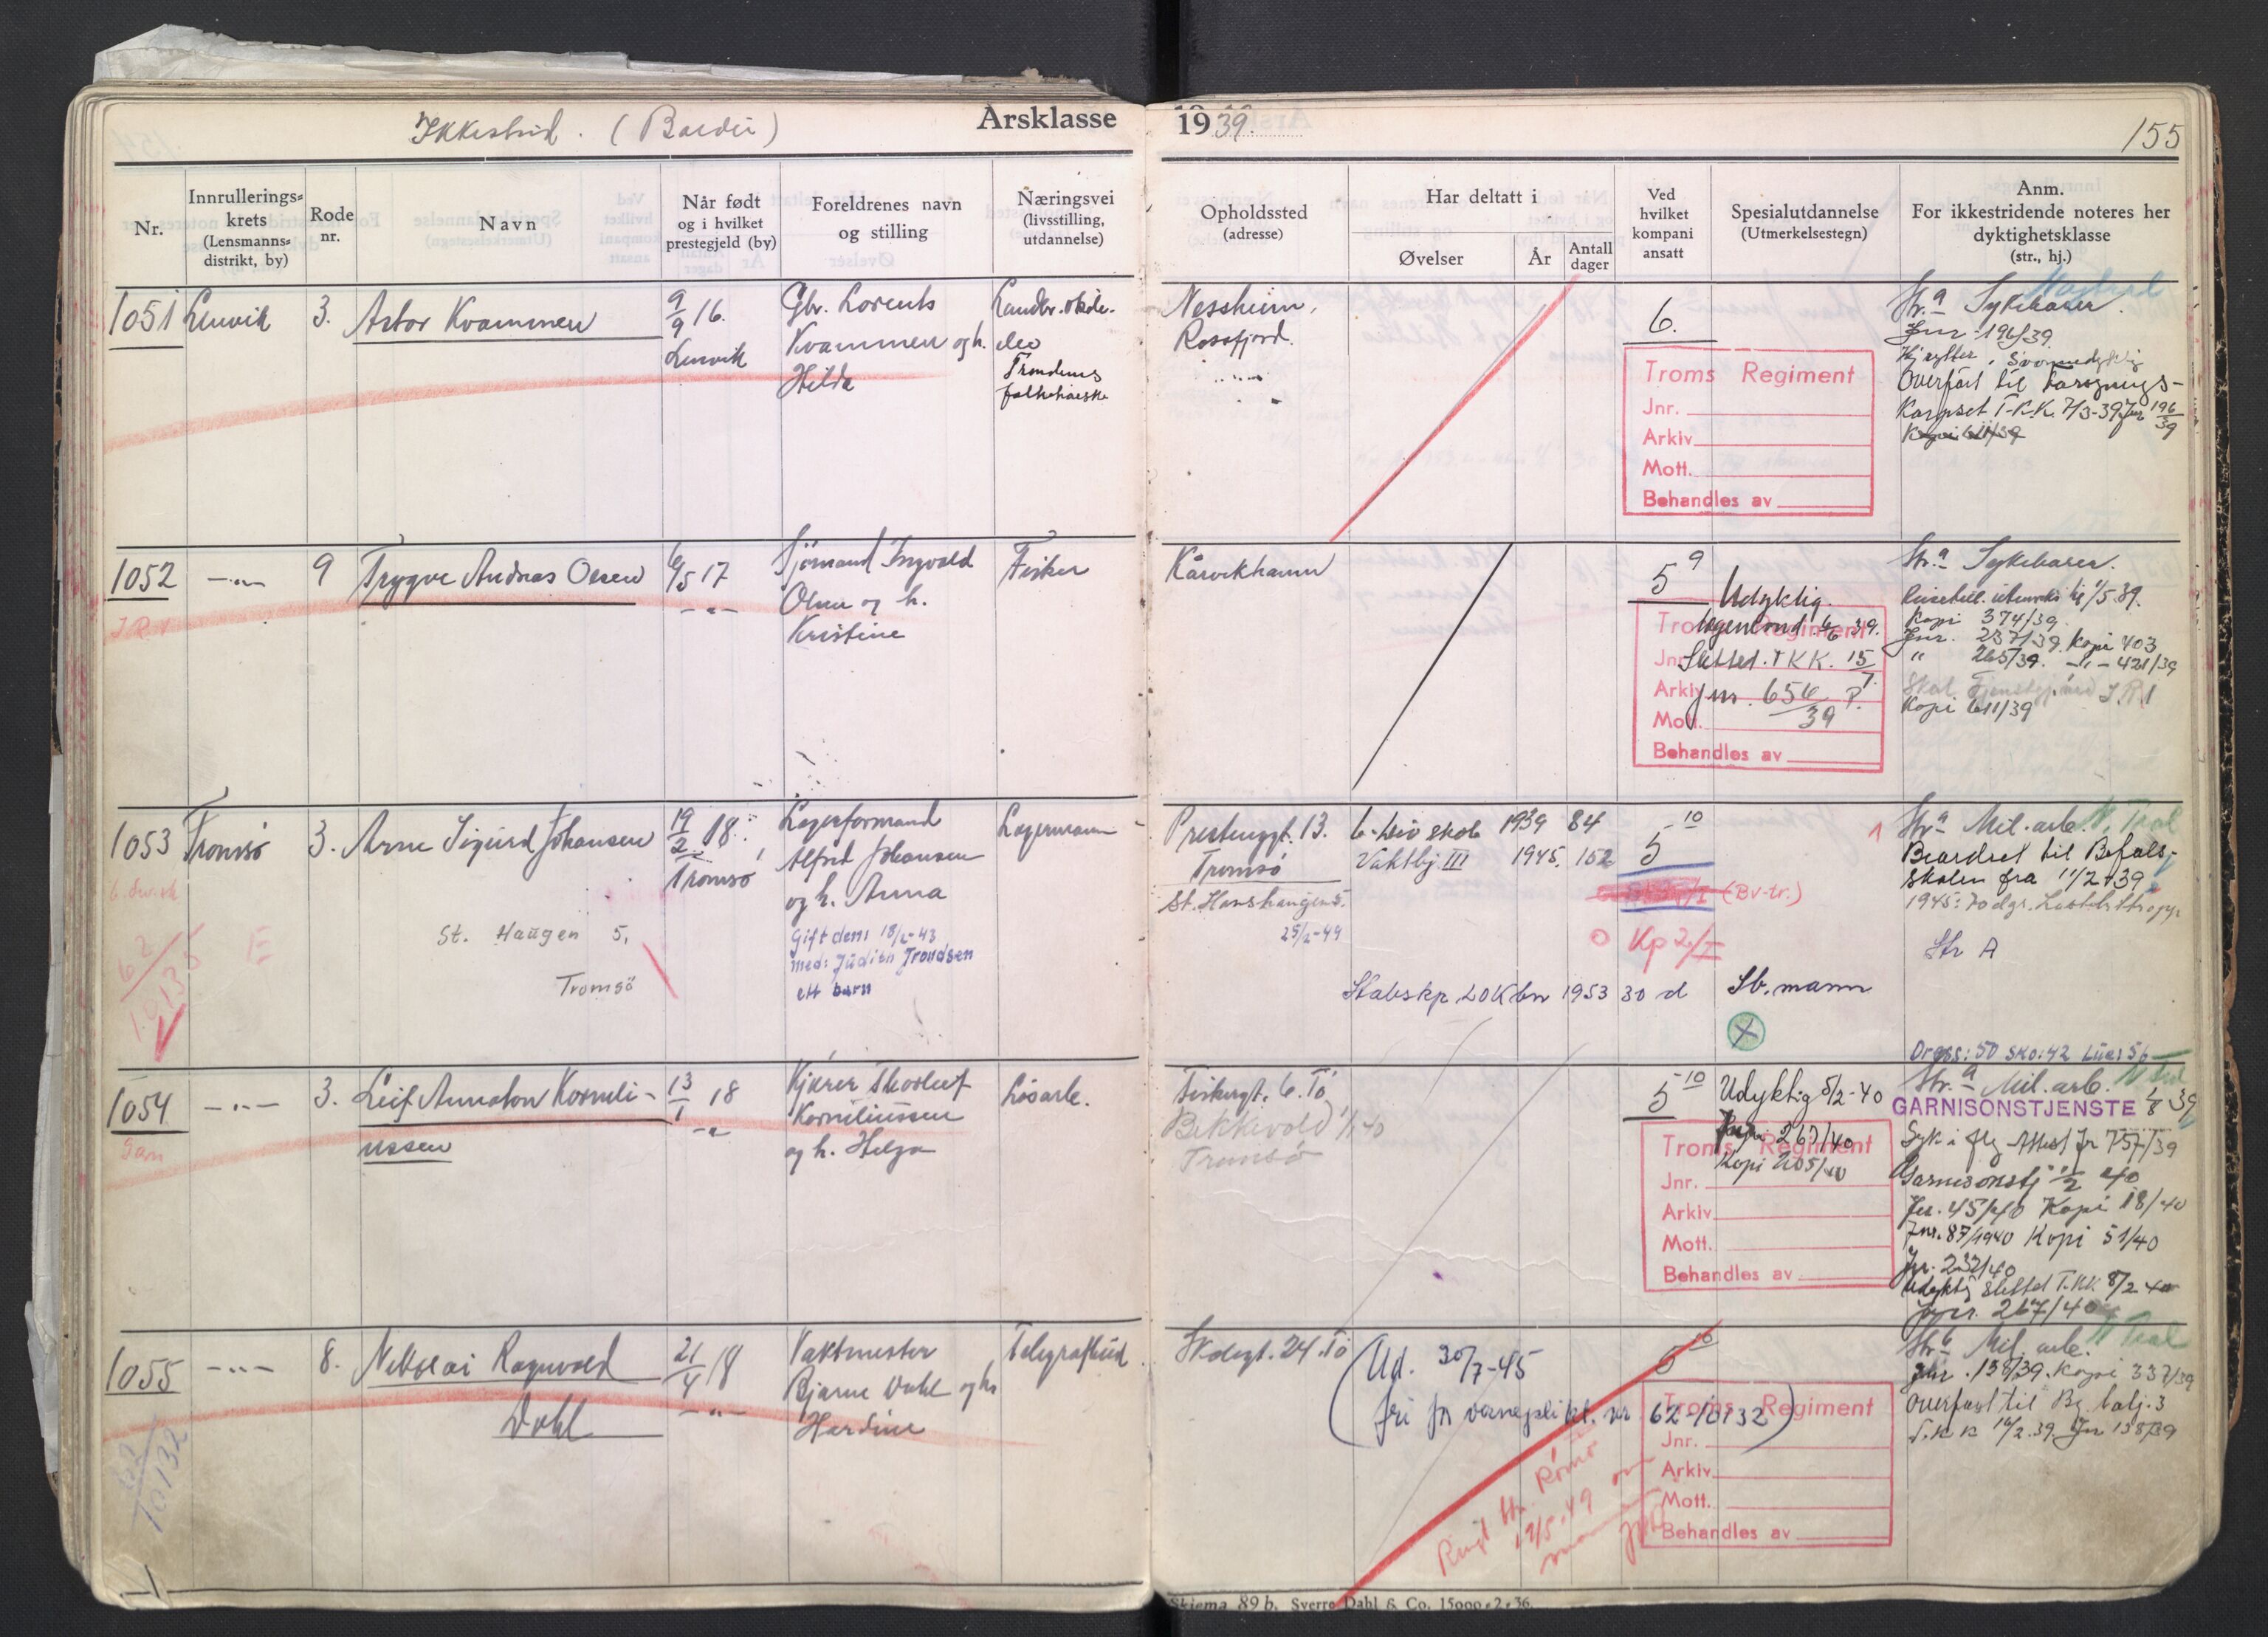 Årsklasse 1939.
155
Nr.
Innrullerings=
krets
(Lensmanns=
distrikt, by)
Rode
nr.
Navn
Når født
og i hvilket
prestegjeld (by)
Foreldrenes navn
og stilling
Næringsvei
(livsstilling,
utdannelse)
Opholdssted
(adresse)
Har deltatt i
Øvelser
År
Antall
dager
Ved
hvilket
kompani
ansatt
Spesialutdannelse
(Utmerkelsestegn)
Anm.
For ikkestridende noteres her
dyktighetsklasse
(str., hj.)
1051
Lenvik
3.
Astor Kvammen
9/9 16.
Lenvik
Gbr. Lorents
Kvammen og h.
Hilda
Landbr. skole-
elev
Trondenes
Nessheim,
Rossfjord.
6.
Troms Regiment
Jnr.
Arkiv
Mott.
Behandles av
Str. a Sykebærer.
Jnr. 196/39
Overført til
T.K.K. 7/3-39 Jnr 196/39
1052
—"—
9
Trygve Andreas Olsen
6/5 17
—"—
Sjømand Ingvald
Olsen og h.
Kristine
Fisker
I R 1
Kårvikhamn
5 9
Udyktig.
6/6 39.
Sletted. T.K.K. 15/7
Jnr. 656/39 P.
Troms Regiment
Jnr.
Arkiv
Mott.
Behandles av
Str. a Sykebærer.
1/5.39.
Kopi 374/39
Jnr. 237/39. Kopi 403
" 265/39. —"— 421/39
Skal I.R.1
Kopi 611/39
1053
Tromsø
3.
Arne Sigurd Johansen
19/2 18.
Tromsø
Lagerformand
Alfred Johansen
og h. Anna
Gift den: 18/2-43
med: Judith Trondsen
ett barn
Lagermann
St. Haugen 5,
Tromsö
62/10135
E
Prestengt. 13.
Tromsø
St. Hanshaugen 5.
25/2-49
6. Div skole 1939 84
Vaktbj III 1945. 152
5 10
(Bv-tr.)
Kp 2/I
Stabskp. LOK bn 1953 30 d
Sb. mann
Str. a Mil. arb.
Beordret til Befals-
skolen fra 11/2-39
1945: 70 dgr.
Str A
Dress: 50 sko: 42 Lue: 56
1054
—"—
3.
Leif Annaton Korneli-
ussen
13/1 18
—"—
Kjører Thorleif
Korneliussen
og h. Helga
Løsarb.
Gan
Fiskergt. 6. Tø
Bekkevold 1/1 40
Tromsø
5 10
Udyktig 5/2-40
267/40
Kopi 205/40
Troms Regiment
Jnr.
Arkiv
Mott.
Behandles av
Str. a Mil. arb.
GARNISONSTJENSTE 1/8 39
Syk i flg Attest Jr 757/39
Garnisonstj 1/2 40
Jnr. 45/40 Kopi 18/40
Jnr. 87/1940 Kopi 51/40
Jnr. 232/40
Udyktig Slettet T.KK 5/2 40
Jnr. 267/40
1055
—"—
8.
Nikolai Ragnvald
Dahl
21/4 18
—"—
Vaktmester
Bjarne Dahl og h.
Hardine
Telegrafbud.
62/10132
Skolegt. 24. Tø
(Ud. 30/7-45
fri for verneplikt. nr 62-10132)
Troms Regiment
Jnr.
Arkiv
Mott.
Behandles av
Str. b Mil. arb.
Jnr. 158/39. Kopi 337/39
Overført til Bg. batj. 3
T.K K 16/2.39. Jnr 158/39
Skjema 89 b. Sverre Dahl & Co. 15000-2-36.